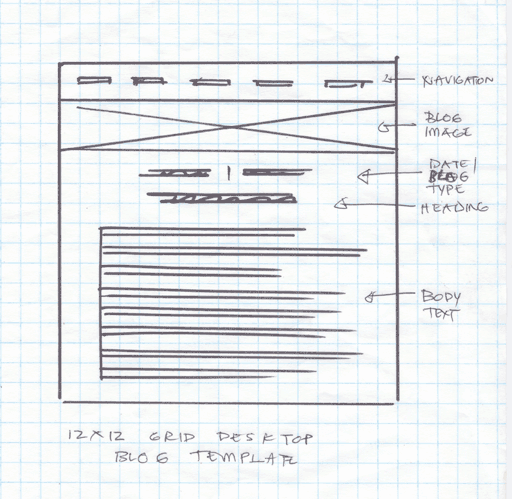 NAVIGATION
BLOG
IMAGE
DATE/
BLOG
TYPE
HEADING
BODY
TEXT
12X12 GRID DESKTOP
BLOG TEMPLATE